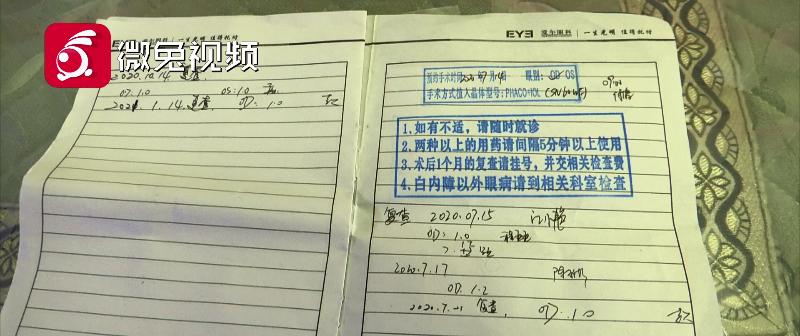 微兔视频
EYE 爱尔眼科 一生光明 值得托付
2020.10.14 复查
OD 1.0 OS: 1.0
2021.1.14 复查, OD: 1.0
EYE 爱尔眼科 一生光明 值得托付
预约手术时间: 眼别: OD OS
手术方式植入晶体型号: PHACO+IOL
1. 如有不适，请随时就诊
2. 两种以上的用药请间隔5分钟以上使用
3. 术后1个月的复查请挂号，并交相关检查费
4. 白内障以外眼病请到相关科室检查
复查 2020.07.15
OD: 1.0
2020.7.17
OD 1.2
2020.7.21 复查, OD: 1.0